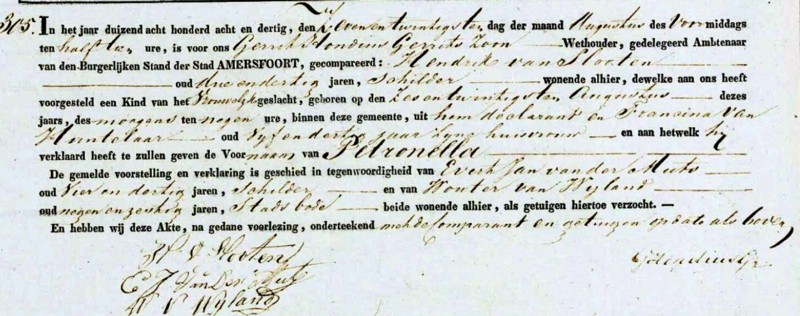 305. In het jaar duizend acht honderd acht en dertig, den zevenentwintigsten dag der maand Augustus des Voormiddags
ten half tien ure, is voor ons Gerrit Hondius Gerrits Zoon Wethouder, gedelegeerd Ambtenaar
van den Burgerlijken Stand der Stad AMERSFOORT, gecompareerd: Hendrik van Slooten
oud drie en dertig jaren, Schilder wonende alhier, dewelke aan ons heeft
voorgesteld een Kind van het Vrouwelijk geslacht, geboren op den Zesentwintigsten Augustus dezes
jaars, des morgens ten negen ure, binnen deze gemeente, uit hem declarant en Francina van
Hantelaar oud Vijf en dertig jaar zijne huisvrouw en aan hetwelk hij
verklaard heeft te zullen geven de Voornaam van Petronella
De gemelde voorstelling en verklaring is geschied in tegenwoordigheid van Evert Jan van der Muts
oud Vier en dertig jaren, Schilder en van Wouter van Nyland
oud negen en zestig jaren, Stads bode beide wonende alhier, als getuigen hiertoe verzocht.
En hebben wij deze Akte, na gedane voorlezing, onderteekend met de Comparant en getuigen op dato als boven,
H v Slooten
E J Van Der Mut
W V Nyland